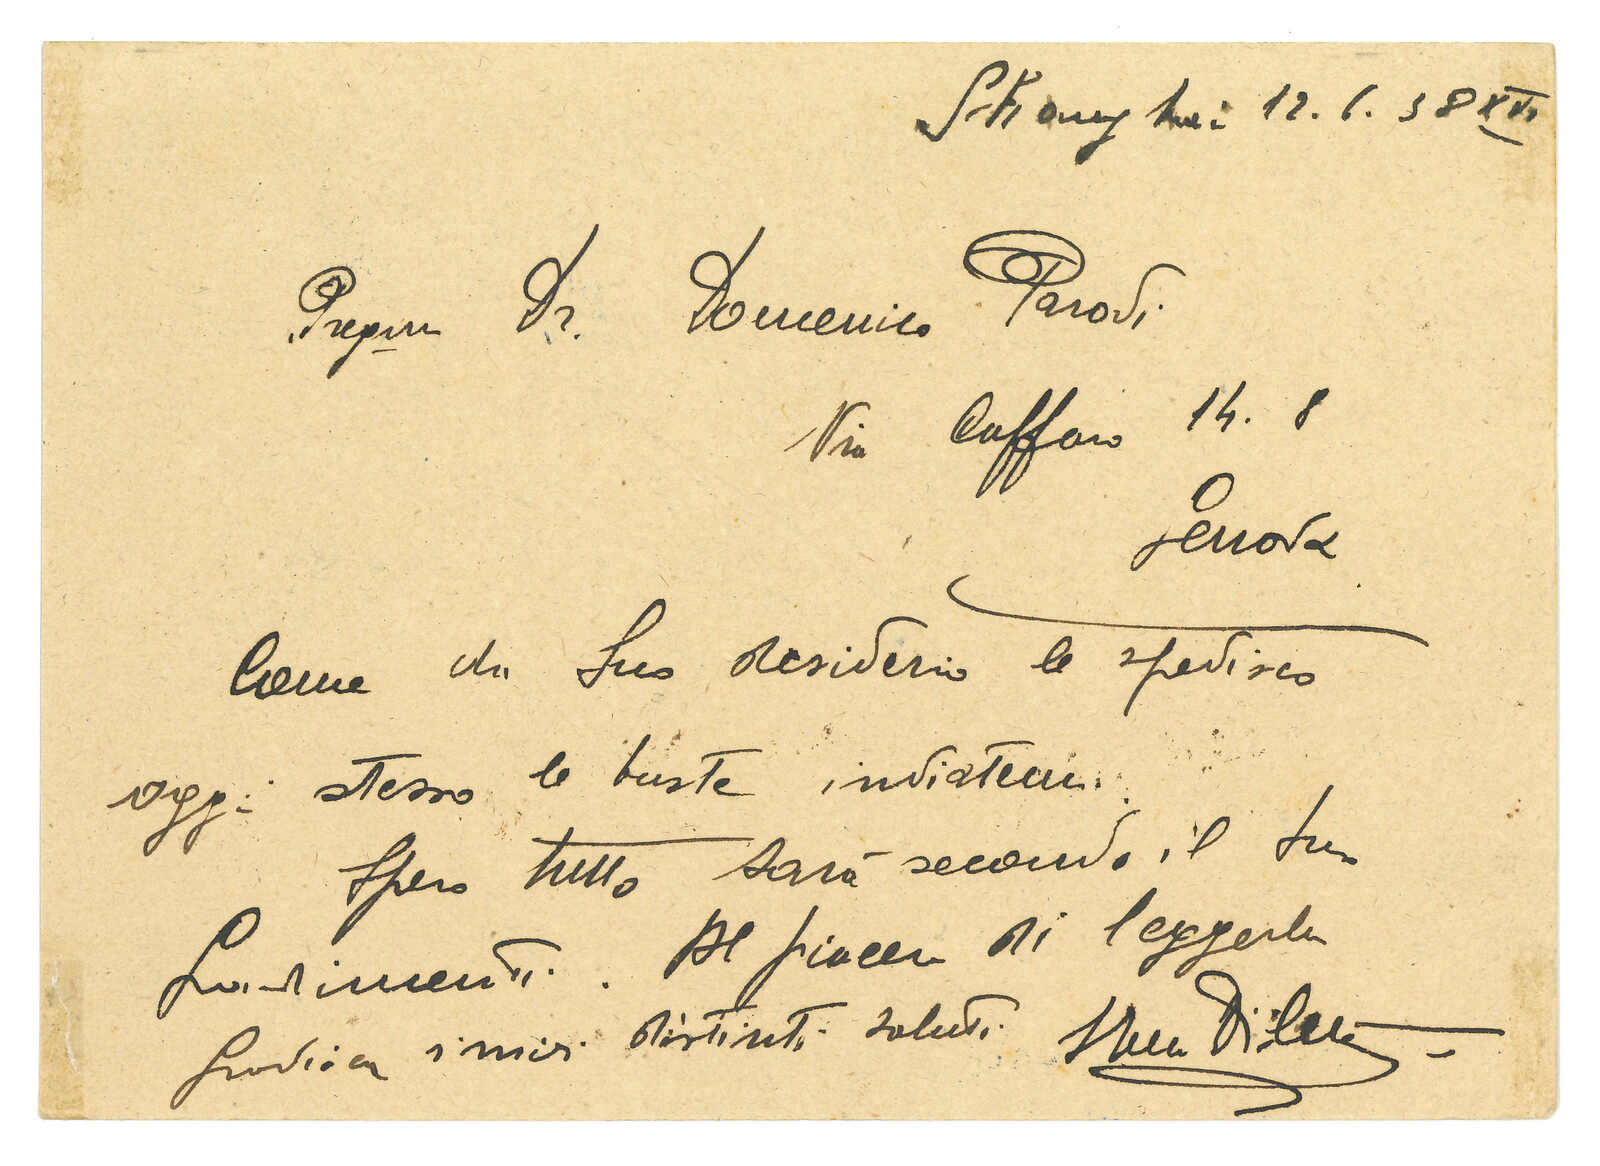 Shanghai 12.6.38 XVI
Pregmo Dr. Domenico Parodi
Via Caffaro 14.8
Genova
Come da Suo desiderio le spedisco
oggi stesso le buste indicatemi.
Spero tutto sarà secondo il Suo
gradimento. Al piacere di leggerla
gradisca i miei distinti saluti